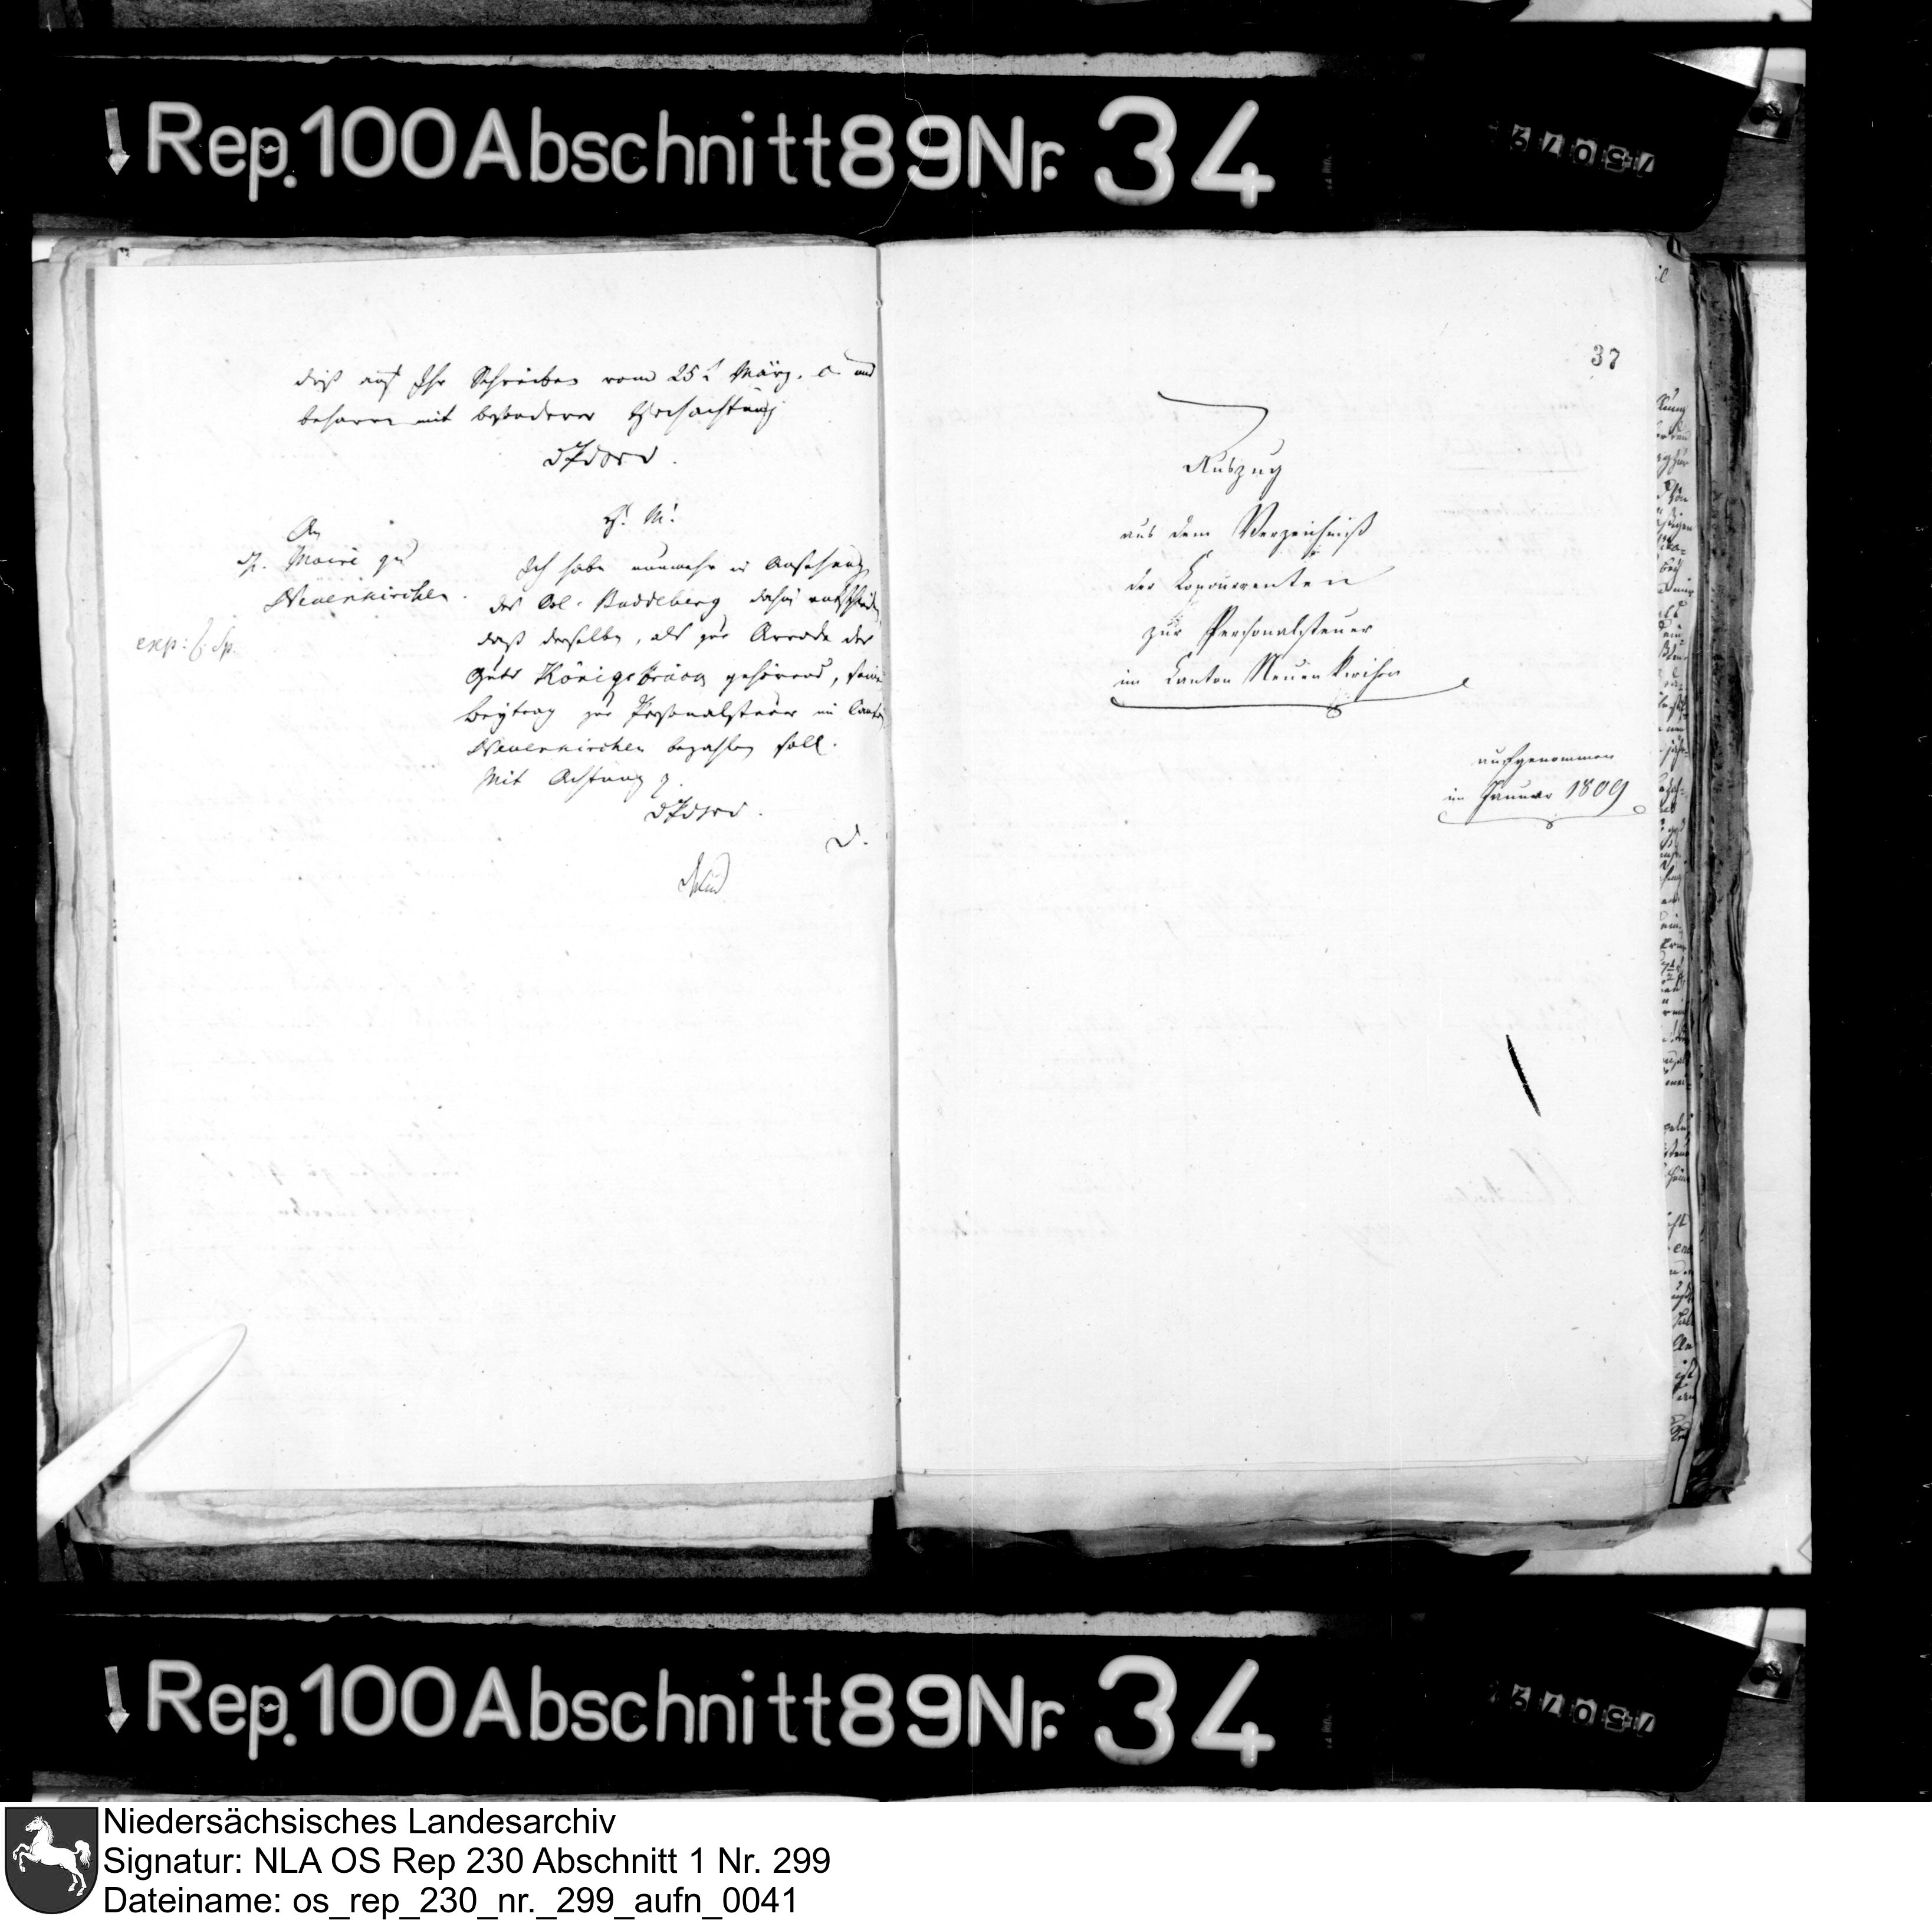 Rep. 100 Abschnitt 89 Nr. 34
dieß auf Ihr Schreiben vom 25t März. c. und
beharre mit besonderer Hochachtung
An
H. Maire zu
Neuenkirchen.
exp:
H! M!
Ich habe nunmehr in Ansehung
des Col. Buddeberg dahin entschieden
daß derselbe, als zur Arrode des
Guts Königsbrück gehörend, seinen
Beytrag zur Personalsteuer im Canton
Neuenkirchen bezahlen soll.
Mit Achtung
37
Auszug
aus dem Verzeichniß
der Konkurrenten
zur Personalsteuer
im Canton Neuenkirchen
aufgenommen
im Januar 1809
Rep. 100 Abschnitt 89 Nr. 34
Niedersächsisches Landesarchiv
Signatur: NLA OS Rep 230 Abschnitt 1 Nr. 299
Dateiname: os_rep_230_nr._299_aufn_0041